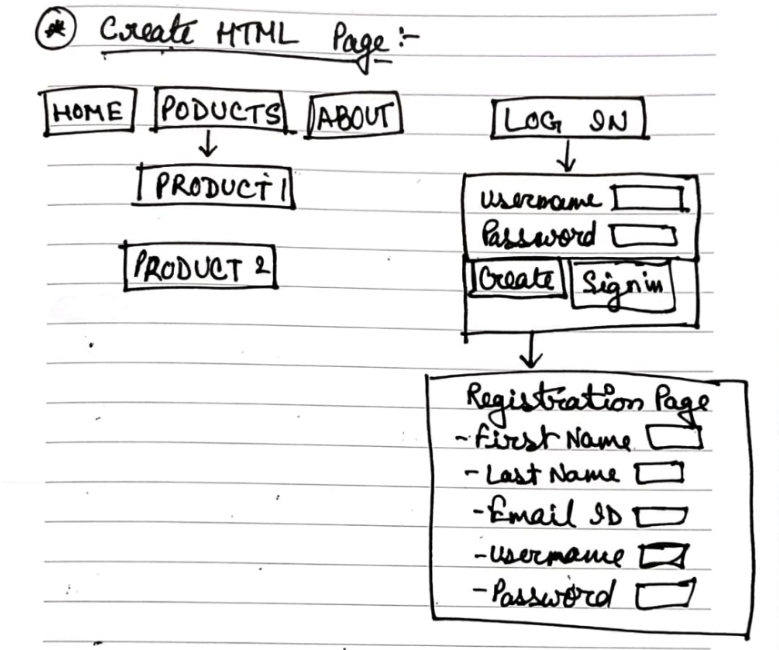 * Create HTML Page :-
HOME PODUCTS ABOUT LOG IN
PRODUCT 1
PRODUCT 2
Username
Password
Create Signin
Registration Page
- First Name
- Last Name
- Email ID
- Username
- Password